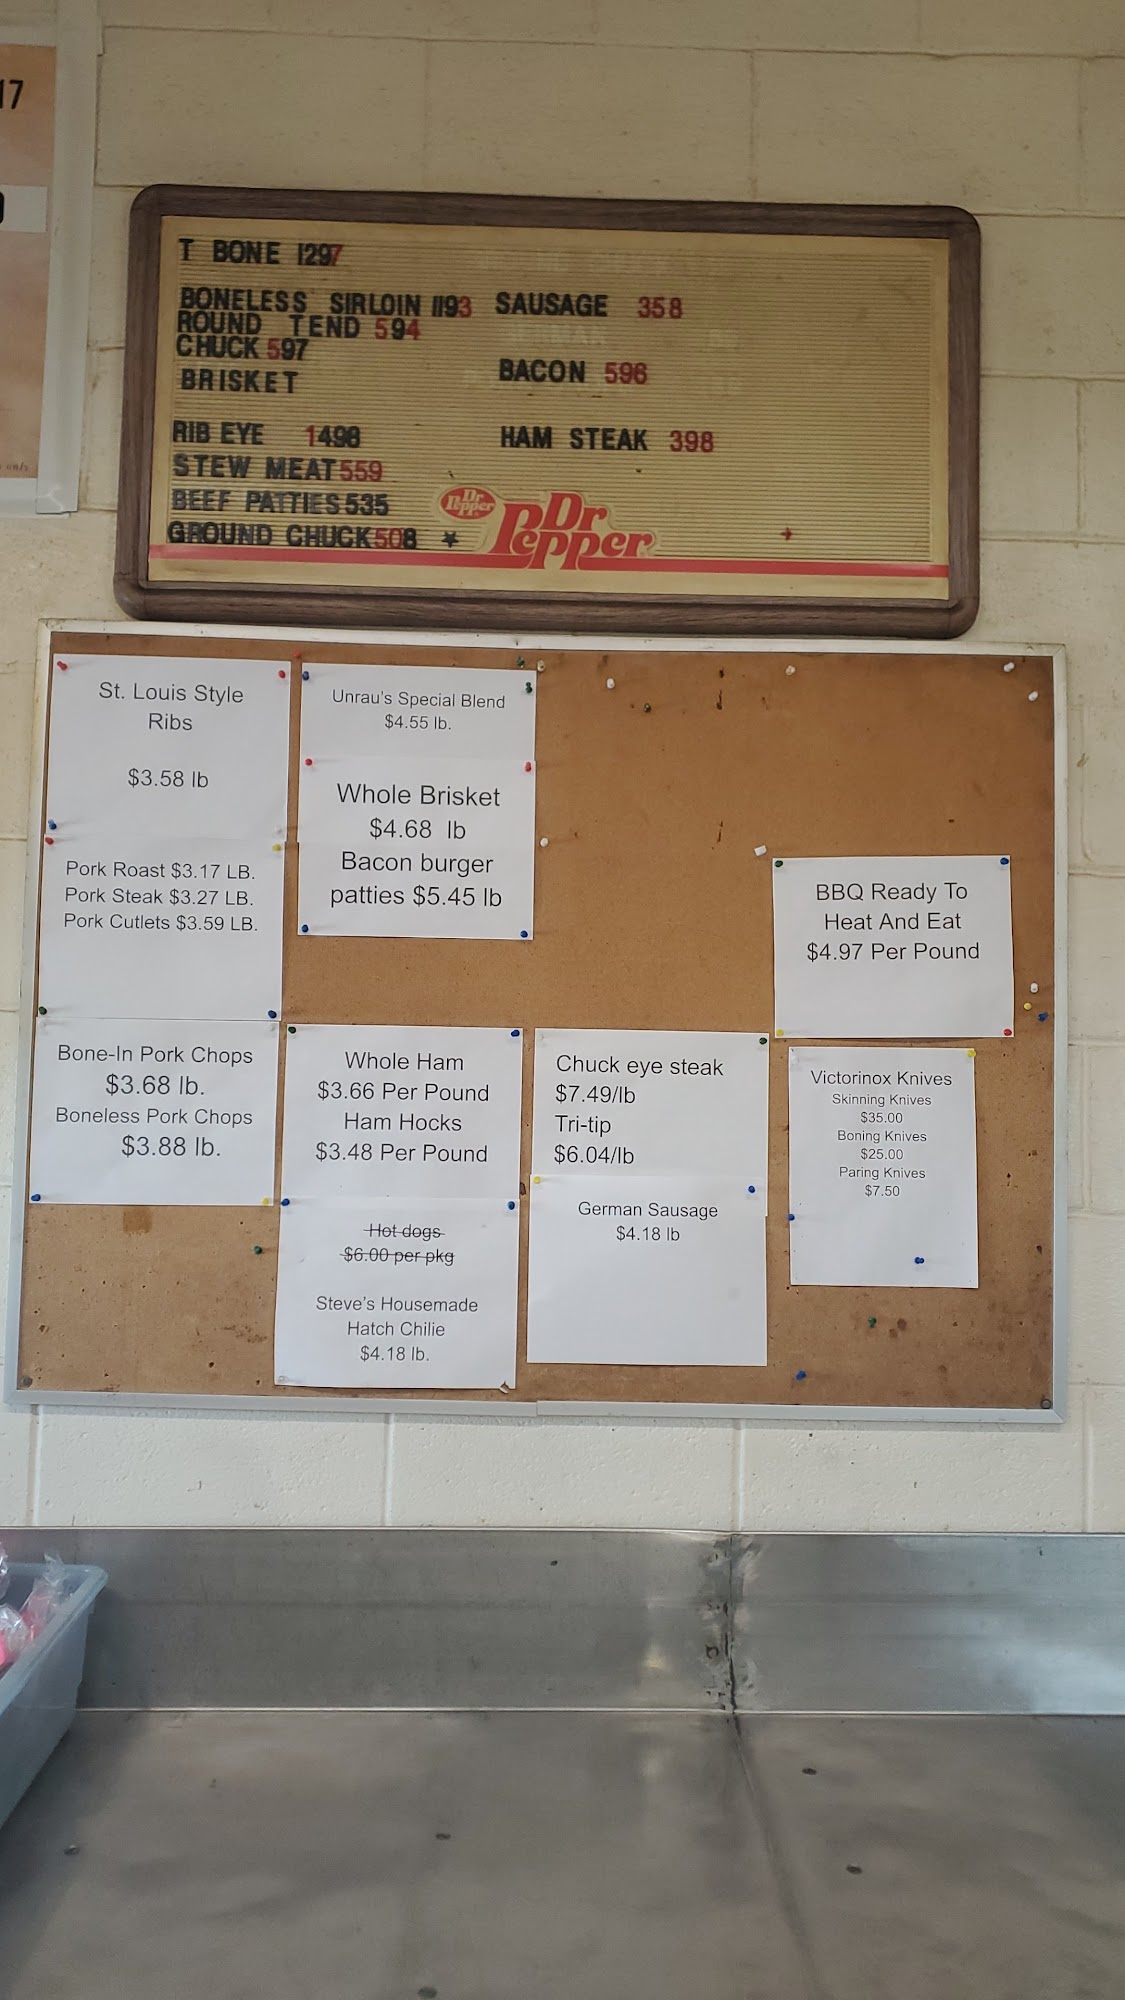 17
T BONE 1297
BONELESS SIRLOIN 1193
ROUND TEND 594
CHUCK 597
BRISKET
RIB EYE 1498
STEW MEAT 559
BEEF PATTIES 535
GROUND CHUCK 508
SAUSAGE 358
BACON 596
HAM STEAK 398
Dr Pepper
Dr Pepper
St. Louis Style
Ribs
$3.58 lb
Pork Roast $3.17 LB.
Pork Steak $3.27 LB.
Pork Cutlets $3.59 LB.
Bone-In Pork Chops
$3.68 lb.
Boneless Pork Chops
$3.88 lb.
Unrau's Special Blend
$4.55 lb.
Whole Brisket
$4.68 lb
Bacon burger
patties $5.45 lb
Whole Ham
$3.66 Per Pound
Ham Hocks
$3.48 Per Pound
Hot dogs
$6.00 per pkg
Steve's Housemade
Hatch Chilie
$4.18 lb.
Chuck eye steak
$7.49/lb
Tri-tip
$6.04/lb
German Sausage
$4.18 lb
BBQ Ready To
Heat And Eat
$4.97 Per Pound
Victorinox Knives
Skinning Knives
$35.00
Boning Knives
$25.00
Paring Knives
$7.50